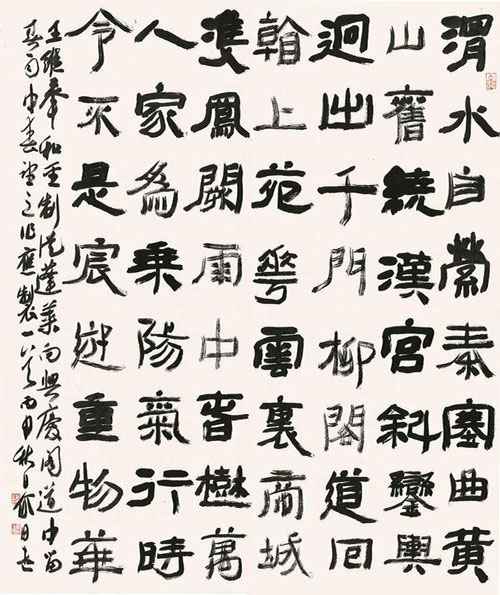 渭水自縈秦塞曲黄
山舊繞漢宮斜鑾輿
迥出千門柳閣道回
翰上苑花雲裏帝城
雙鳳闕雨中春樹萬
人家為乗陽氣行時
令不是宸遊重物華
王維奉和聖制從蓬萊向興慶閣道中留
春雨中春望之作應製一首丙申秋月